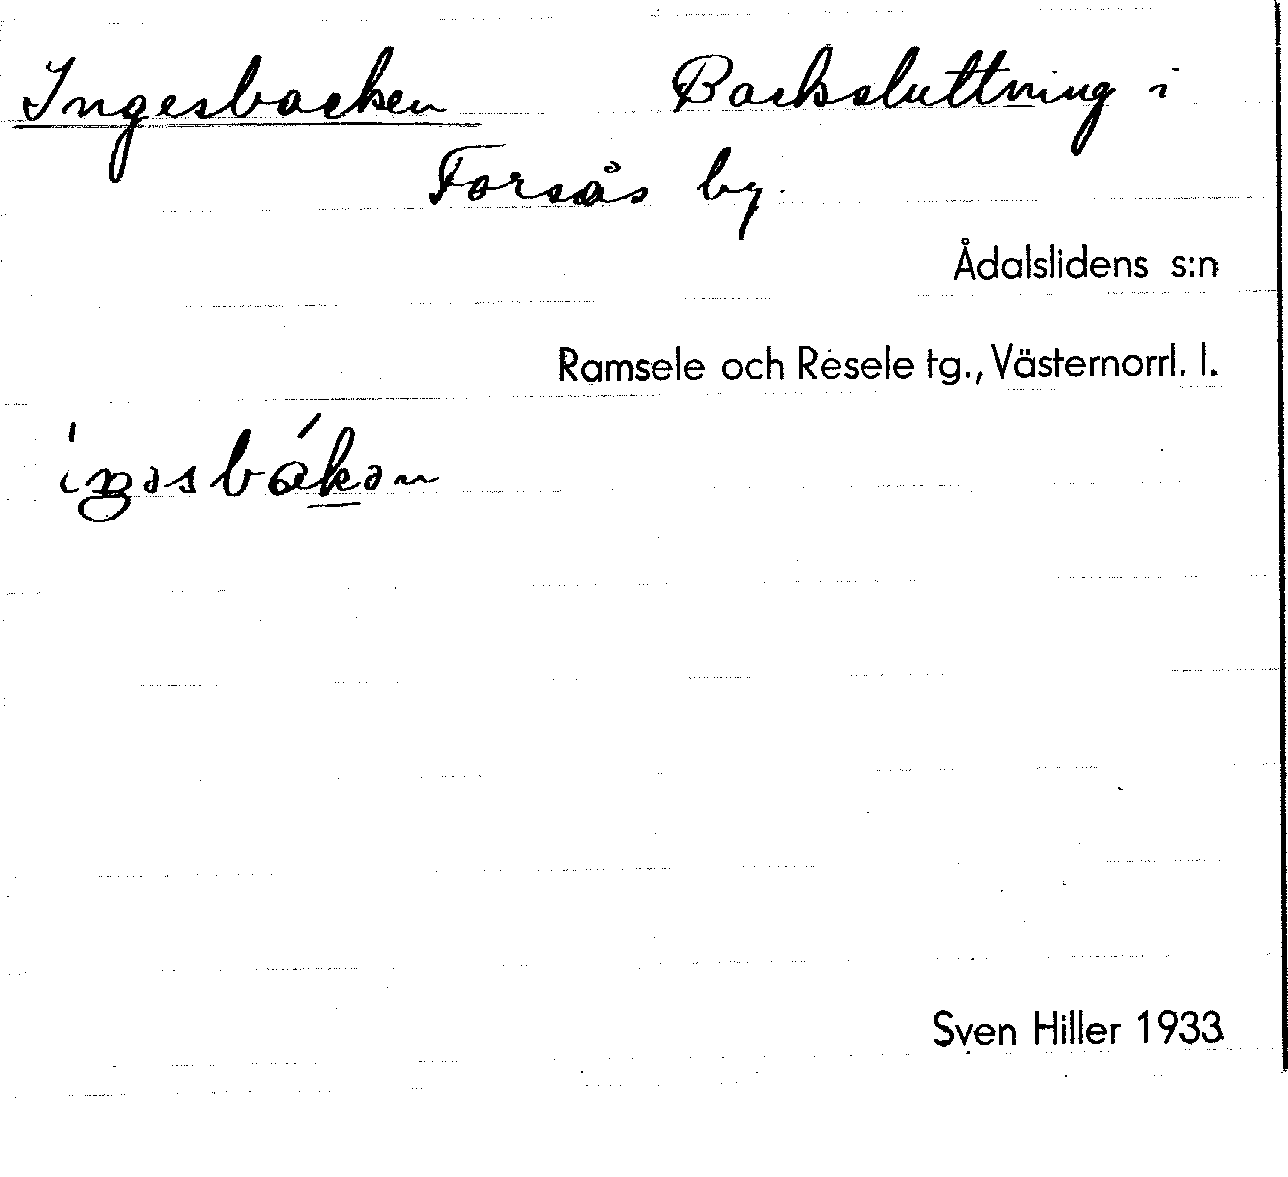 Ingesbacken Backsluttning i
Forsås by.
Ådalslidens s:n
Ramsele och Resele tg., Västernorrl. l.
Sven Hiller 1933